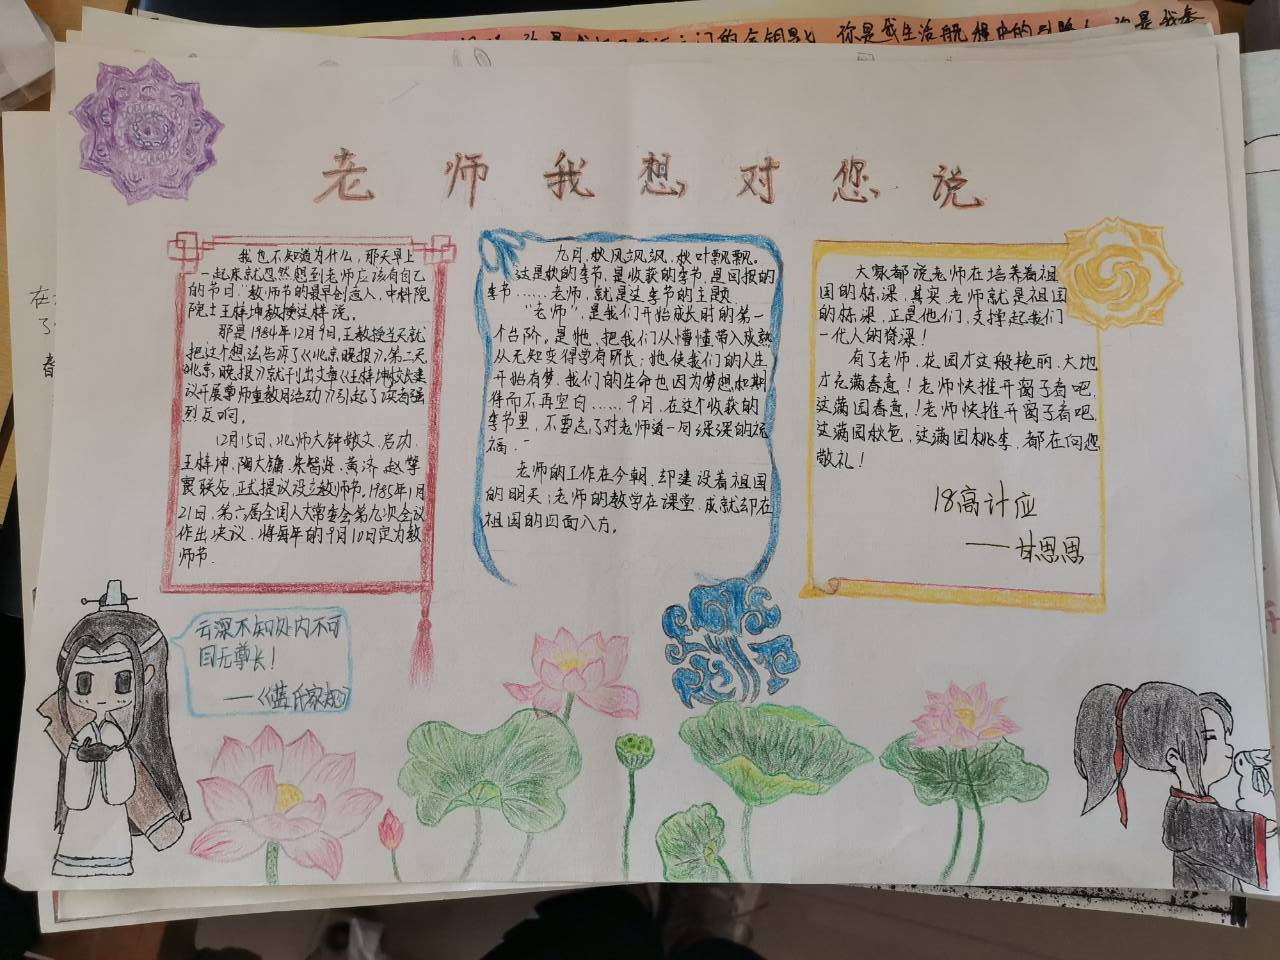 老师我想对您说
我也不知道为什么，那天早上
一起来就忽然想到老师应该有自己
的节日"教师节的最早创意人，中科院
院士王梓坤教授这样说。
那是1984年12月9日，王教授当天就
把这个想法告诉了《北京晚报》，第二天
《北京晚报》就刊出文章《王梓坤校长建
议开展尊师重教月活动》引起了读者强
烈反响。
12月15日，北师大钟敬文、启功、
王梓坤、陶大镛、朱智贤、黄济、赵擎
寰联名，正式提议设立教师节。1985年1月
21日，第六届全国人大常委会第九次会议
作出决议，将每年的9月10日定为教
师节.
九月，秋风飒飒，秋叶飘飘。
这是秋的季节，是收获的季节，是回报的
季节……老师，就是这季节的主题
"老师"，是我们开始成长时的第一
个台阶。是她，把我们从懵懂带入成熟
从无知变得学有所长；她使我们的人生
开始有梦，我们的生命也因为梦想和期
待而不再空白……9月，在这个收获的
季节里，不要忘了对老师道一句深深的祝
福.
老师的工作在今朝，却建设着祖国
的明天；老师的教学在课堂，成就却在
祖国的四面八方。
大家都说老师在培养着祖
国的栋梁，其实，老师就是祖国
的栋梁，正是他们，支撑起我们
一代人的脊梁！
有了老师，花园才这般艳丽，大地
才充满春意！老师快推开窗子看吧，
这满园春意，！老师快推开窗子看吧，
这满园秋色，这满园桃李，都在向您
敬礼！
18高计应
——甘思思
云深不知处内不可
目无尊长！
——《蓝氏家规》